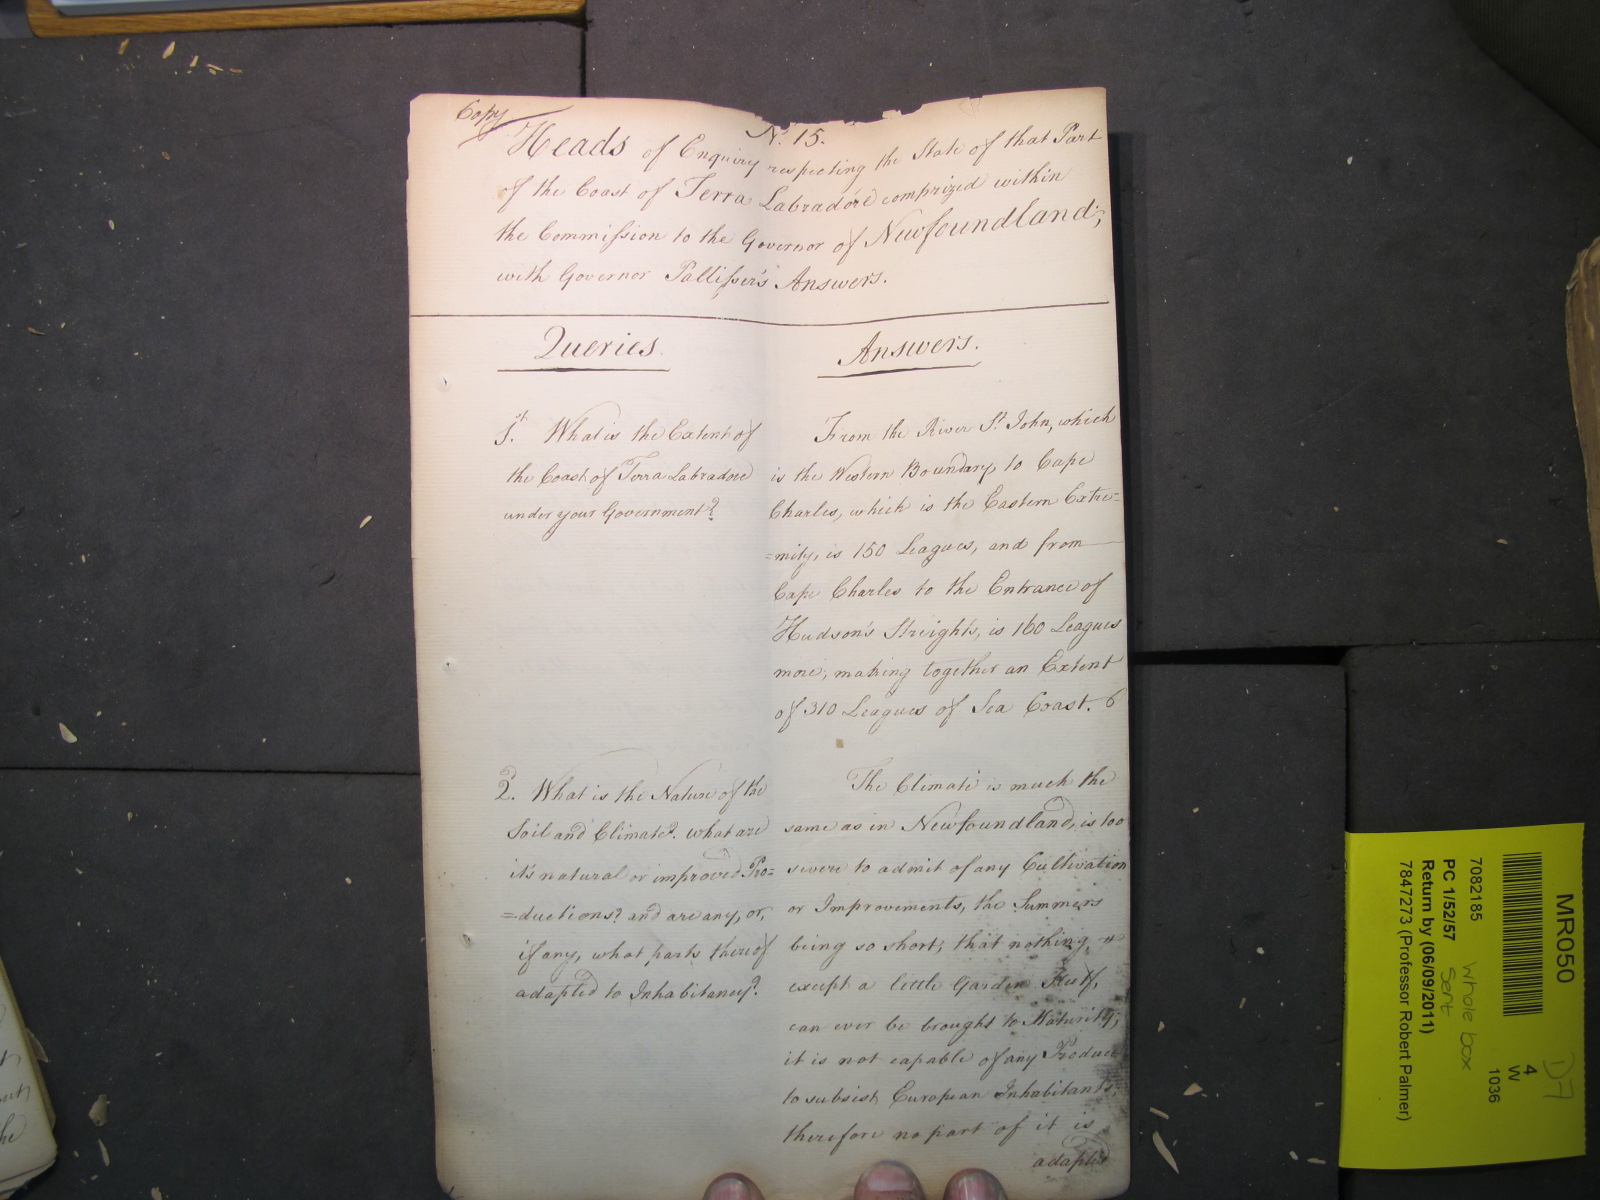 Copy
No. 15.
Heads of Enquiry respecting the State of that Part
of the Coast of Terra Labradore comprized within
the Commission to the Governor of Newfoundland;
with Governor Pallisser's Answers.
Queries.
Answers.
1st. What is the Extent of
the Coast of Terra Labradore
under your Government?
From the River St. John, which
is the Western Boundary, to Cape
Charles, which is the Eastern Extre=
=mity, is 150 Leagues, and from
Cape Charles to the Entrance of
Hudson's Streights, is 160 Leagues
more, making together an Extent
of 310 Leagues of Sea Coast. 6
2d. What is the Nature of the
Soil and Climate? what are
it's natural or improved Pro=
=ductions? and are any, or,
if any, what parts thereof
adapted to Inhabitancy?
The Climate is much the
same as in Newfoundland, is too
severe to admit of any Cultivation
or Improvements, the Summers
being so short, that nothing
except a little Garden Stuff,
can ever be brought to Maturity;
it is not capable of any Produce
to subsist European Inhabitants,
therefore no part of it is
adapted
MR050
7082185
PC 1/52/57
Return by (06/09/2011)
7847273 (Professor Robert Palmer)
whole box
sent
4
W
1036
D7